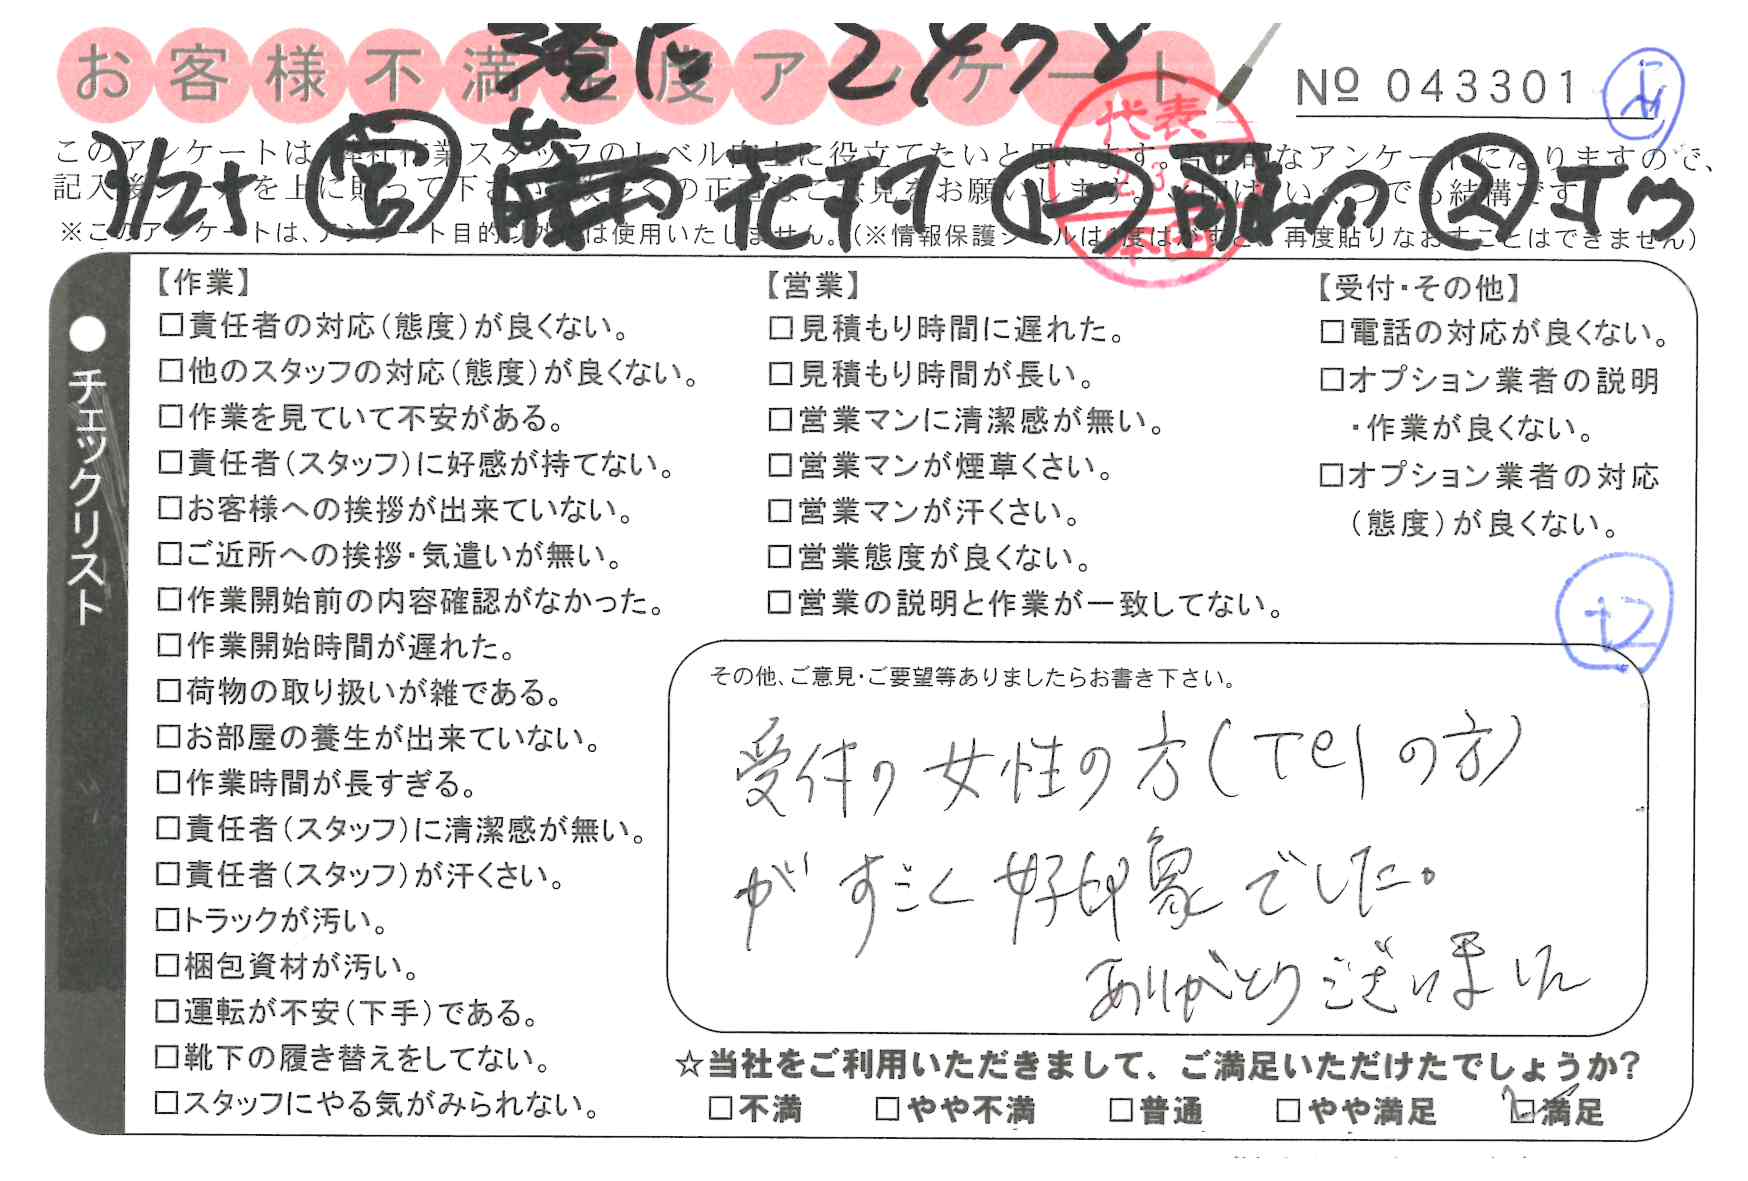 お客様不満足度アンケート
港区
No 043301
このアンケートは、弊社作業スタッフのレベル向上に役立てたいと思います。
なアンケートになりますので、
3/25 営 花村
※このアンケートは、アンケート目的以外には使用いたしません。(※情報保護シールは1度はがすと、再度貼りなおすことはできません)
代表
本田
●チェックリスト
【作業】
□責任者の対応(態度)が良くない。
□他のスタッフの対応(態度)が良くない。
□作業を見ていて不安がある。
□責任者(スタッフ)に好感が持てない。
□お客様への挨拶が出来ていない。
□ご近所への挨拶・気遣いが無い。
□作業開始前の内容確認がなかった。
□作業開始時間が遅れた。
□荷物の取り扱いが雑である。
□お部屋の養生が出来ていない。
□作業時間が長すぎる。
□責任者(スタッフ)に清潔感が無い。
□責任者(スタッフ)が汗くさい。
□トラックが汚い。
□梱包資材が汚い。
□運転が不安(下手)である。
□靴下の履き替えをしてない。
□スタッフにやる気がみられない。
【営業】
□見積もり時間に遅れた。
□見積もり時間が長い。
□営業マンに清潔感が無い。
□営業マンが煙草くさい。
□営業マンが汗くさい。
□営業態度が良くない。
□営業の説明と作業が一致してない。
【受付・その他】
□電話の対応が良くない。
□オプション業者の説明
・作業が良くない。
□オプション業者の対応
(態度)が良くない。
+2
その他、ご意見・ご要望等ありましたらお書き下さい。
受付の女性の方(Telの方)
がすごく好印象でした。
ありがとうございました
☆当社をご利用いただきまして、ご満足いただけたでしょうか?
□不満 □やや不満 □普通 □やや満足 ☑満足